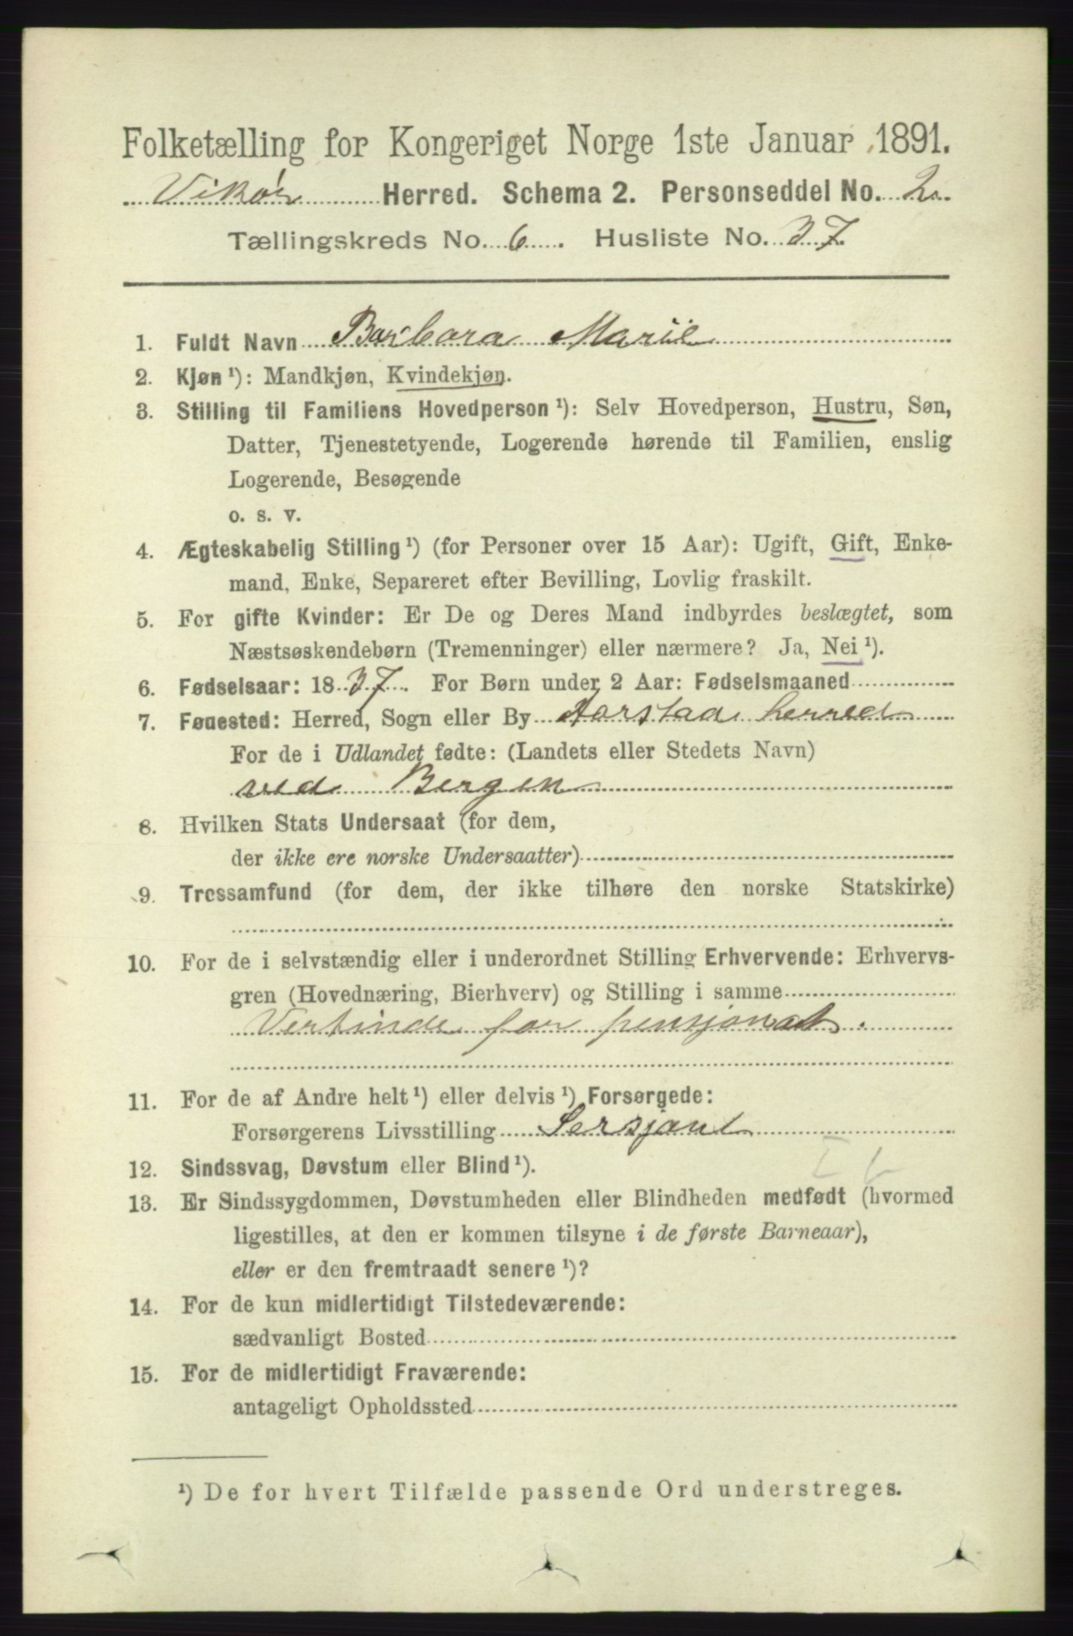 Folketælling for Kongeriget Norge 1ste Januar 1891.
Vikör Herred. Schema 2. Personseddel No. 2.
Tællingskreds No. 6. Husliste No. 37.
1. Fuldt Navn Barbara Marie
2. Kjøn ¹): Mandkjøn, Kvindekjøn.
3. Stilling til Familiens Hovedperson ¹): Selv Hovedperson, Hustru, Søn,
Datter, Tjenestetyende, Logerende hørende til Familien, enslig
Logerende, Besøgende
o. s. v.
4. Ægteskabelig Stilling ¹) (for Personer over 15 Aar): Ugift, Gift, Enke-
mand, Enke, Separeret efter Bevilling, Lovlig fraskilt.
5. For gifte Kvinder: Er De og Deres Mand indbyrdes beslægtet, som
Næstsøskendebørn (Tremenninger) eller nærmere? Ja, Nei ¹).
6. Fødselsaar: 1837. For Børn under 2 Aar: Fødselsmaaned
7. Føuested: Herred, Sogn eller By Aarstad herred
For de i Udlandet fødte: (Landets eller Stedets Navn)
ved Bergen
8. Hvilken Stats Undersaat (for dem,
der ikke ere norske Undersaatter)
9. Trossamfund (for dem, der ikke tilhøre den norske Statskirke)
10. For de i selvstændig eller i underordnet Stilling Erhvervende: Erhvervs-
gren (Hovednæring, Bierhverv) og Stilling i samme
Vertinde for pensjonat.
11. For de af Andre helt ¹) eller delvis ¹) Forsørgede:
Forsørgerens Livsstilling Sersjant
12. Sindssvag, Døvstum eller Blind ¹).
13. Er Sindssygdommen, Døvstumheden eller Blindheden medfødt (hvormed
ligestilles, at den er kommen tilsyne i de første Barneaar),
eller er den fremtraadt senere ¹)?
14. For de kun midlertidigt Tilstedeværende:
sædvanligt Bosted
15. For de midlertidigt Fraværende:
antageligt Opholdssted
¹) De for hvert Tilfælde passende Ord understreges.